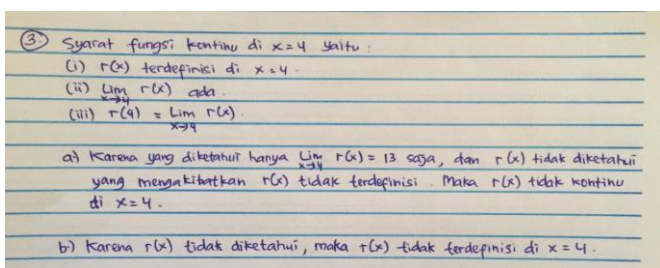 3. Syarat fungsi kontinu di x = 4 yaitu :
(i) r(x) terdefinisi di x = 4.
(ii) Lim x→4 r(x) ada.
(iii) r(4) = Lim x→4 r(x).
a) Karena yang diketahui hanya Lim x→4 r(x) = 13 saja, dan r(x) tidak diketahui
yang mengakibatkan r(x) tidak terdefinisi. Maka r(x) tidak kontinu
di x = 4.
b) Karena r(x) tidak diketahui, maka r(x) tidak terdefinisi di x = 4.